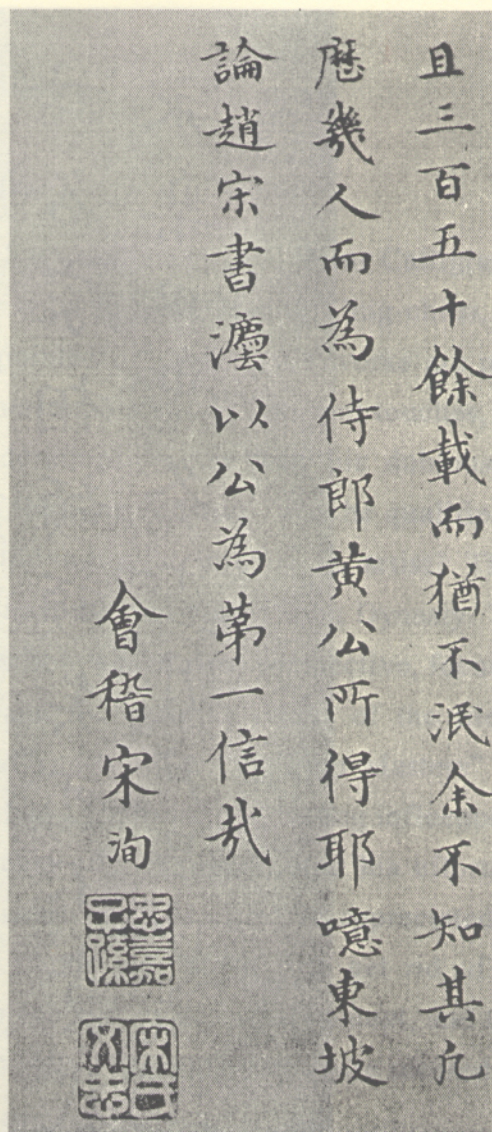 且三百五十餘載而猶不泯余不知其凡
歷幾人而為侍郎黃公所得耶噫東坡
論趙宋書灋以公為第一信哉
會稽宋洵